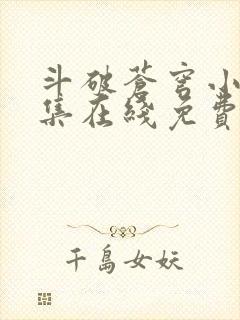 斗破蒼穹小
集在綫免費
千島女妖